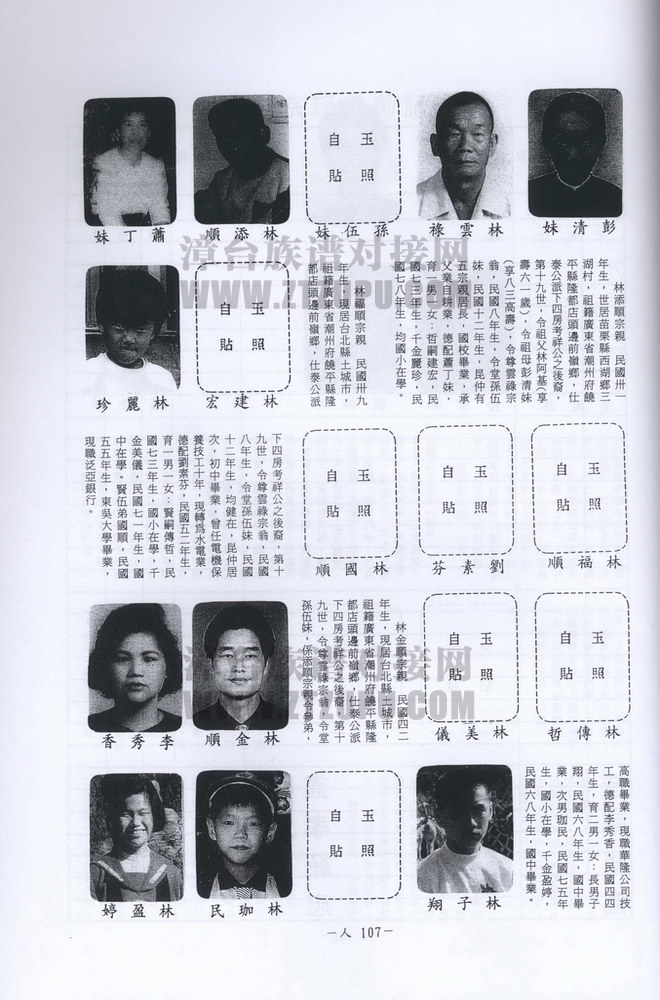 彭清妹
林雲祿
孫伍妹
玉照
自貼
林添順
蕭丁妹
林添順宗親　民國卅一
年生，世居苗栗縣西湖鄉三
湖村，祖籍廣東省潮州府饒
平縣隆都店頭邊前嶺鄉，仕
泰公派下四房考祥公之後裔，
第十九世，令祖父林阿基（享
壽六一歲），令祖母彭清妹
（享八三高壽），令尊雲祿宗
翁，民國八年生，令堂孫伍
妹，民國十二年生，昆仲有
五宗親居長，國校畢業，承
父業自耕業，德配蕭丁妹，
育一男一女：哲嗣建宏，民
國七三年生，千金麗珍，民
國七八年生，均國小在學。
林建宏
玉照
自貼
林麗珍
林福順宗親　民國卅九
年生，現居台北縣土城市，
祖籍廣東省潮州府饒平縣隆
都店頭邊前嶺鄉，仕泰公派
下四房考祥公之後裔，第十
九世，令尊雲祿宗翁，民國
八年生，令堂孫伍妹，民國
十二年生，均健在，昆仲居
次，初中畢業，曾任電機保
養技工十年，現轉為水電業，
德配劉素芬，民國五二年生，
育一男一女：賢嗣傳哲，民
國七三年生，國小在學，千
金美儀，民國七一年生，國
中在學。賢伍弟國順，民國
五五年生，東吳大學畢業，
現職泛亞銀行。
林福順
玉照
自貼
劉素芬
玉照
自貼
林國順
玉照
自貼
林傳哲
玉照
自貼
林美儀
玉照
自貼
林金順宗親　民國四二
年生，現居台北縣土城市，
祖籍廣東省潮州府饒平縣隆
都店頭邊前嶺鄉，仕泰公派
下四房考祥公之後裔，第十
九世，令尊雲祿宗翁，令堂
孫伍妹，係添順宗親令參弟，
林金順
李秀香
高職畢業，現職華隆公司技
工，德配李秀香，民國四四
年生，育二男一女：長男子
翔，民國六八年生，國中畢
業，次男珈民，民國七五年
生，國小在學，千金盈婷，
民國六八年生，國中畢業。
林子翔
玉照
自貼
林珈民
林盈婷
－人 107－
漳台族谱对接网
漳台族谱对接网